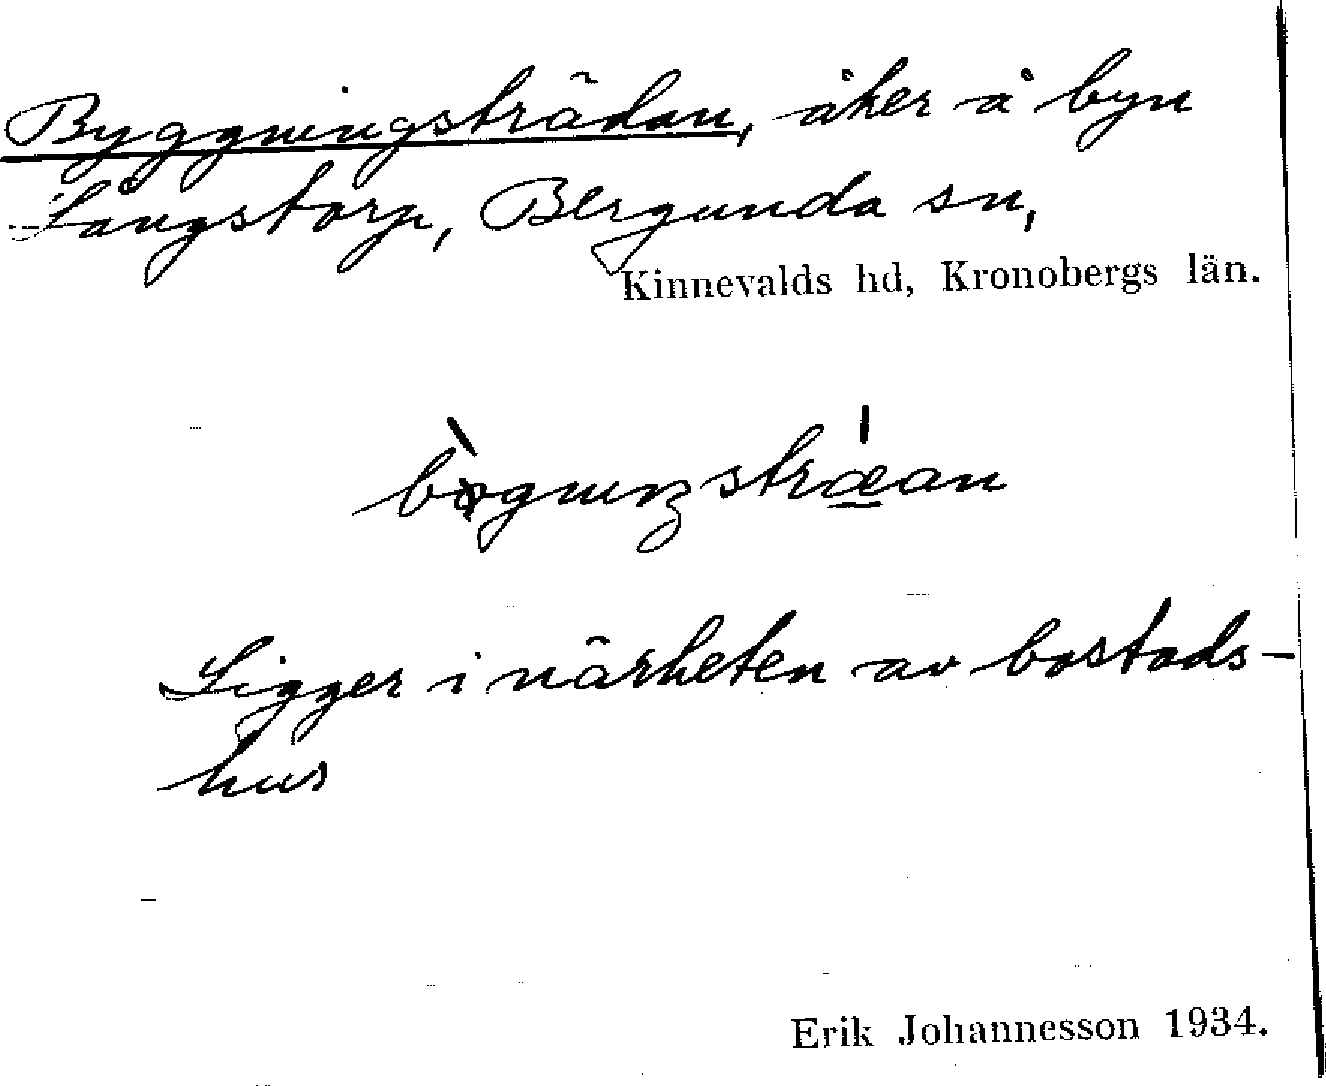 Byggningsträdan, åker å byn
Långstorp, Bergunda sn,
Kinnevalds hd, Kronobergs län.
Ligger i närheten av bostads-
hus
Erik Johannesson 1934.